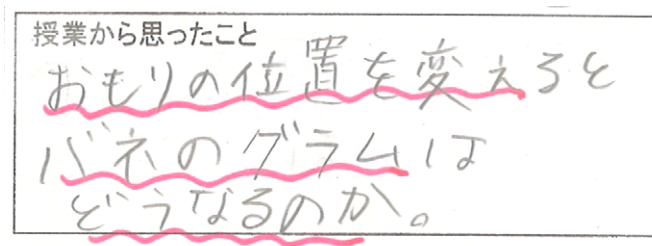 授業から思ったこと
おもりの位置を変えると
バネのグラムは
どうなるのか。